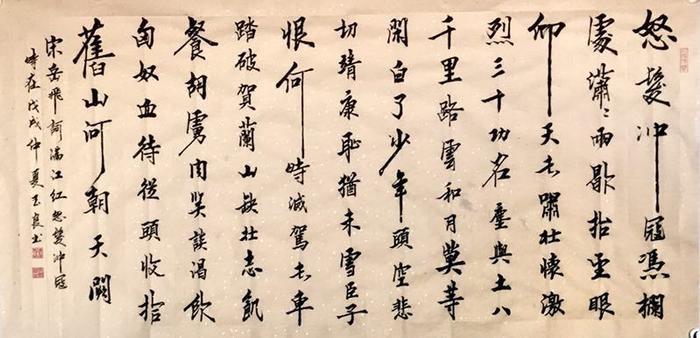 怒髮冲冠憑欄
處瀟〻雨歇抬望眼
仰天長嘯壯懷激
烈三十功名塵與土八
千里路雲和月莫等
閑白了少年頭空悲
切靖康恥猶未雪臣子
恨何時滅駕長車
踏破賀蘭山缺壯志飢
餐胡虜肉笑談渴飲
匈奴血待從頭收拾
舊山河朝天闕
宋岳飛詞滿江紅怒髮冲冠
時在戊戌仲夏玉良書